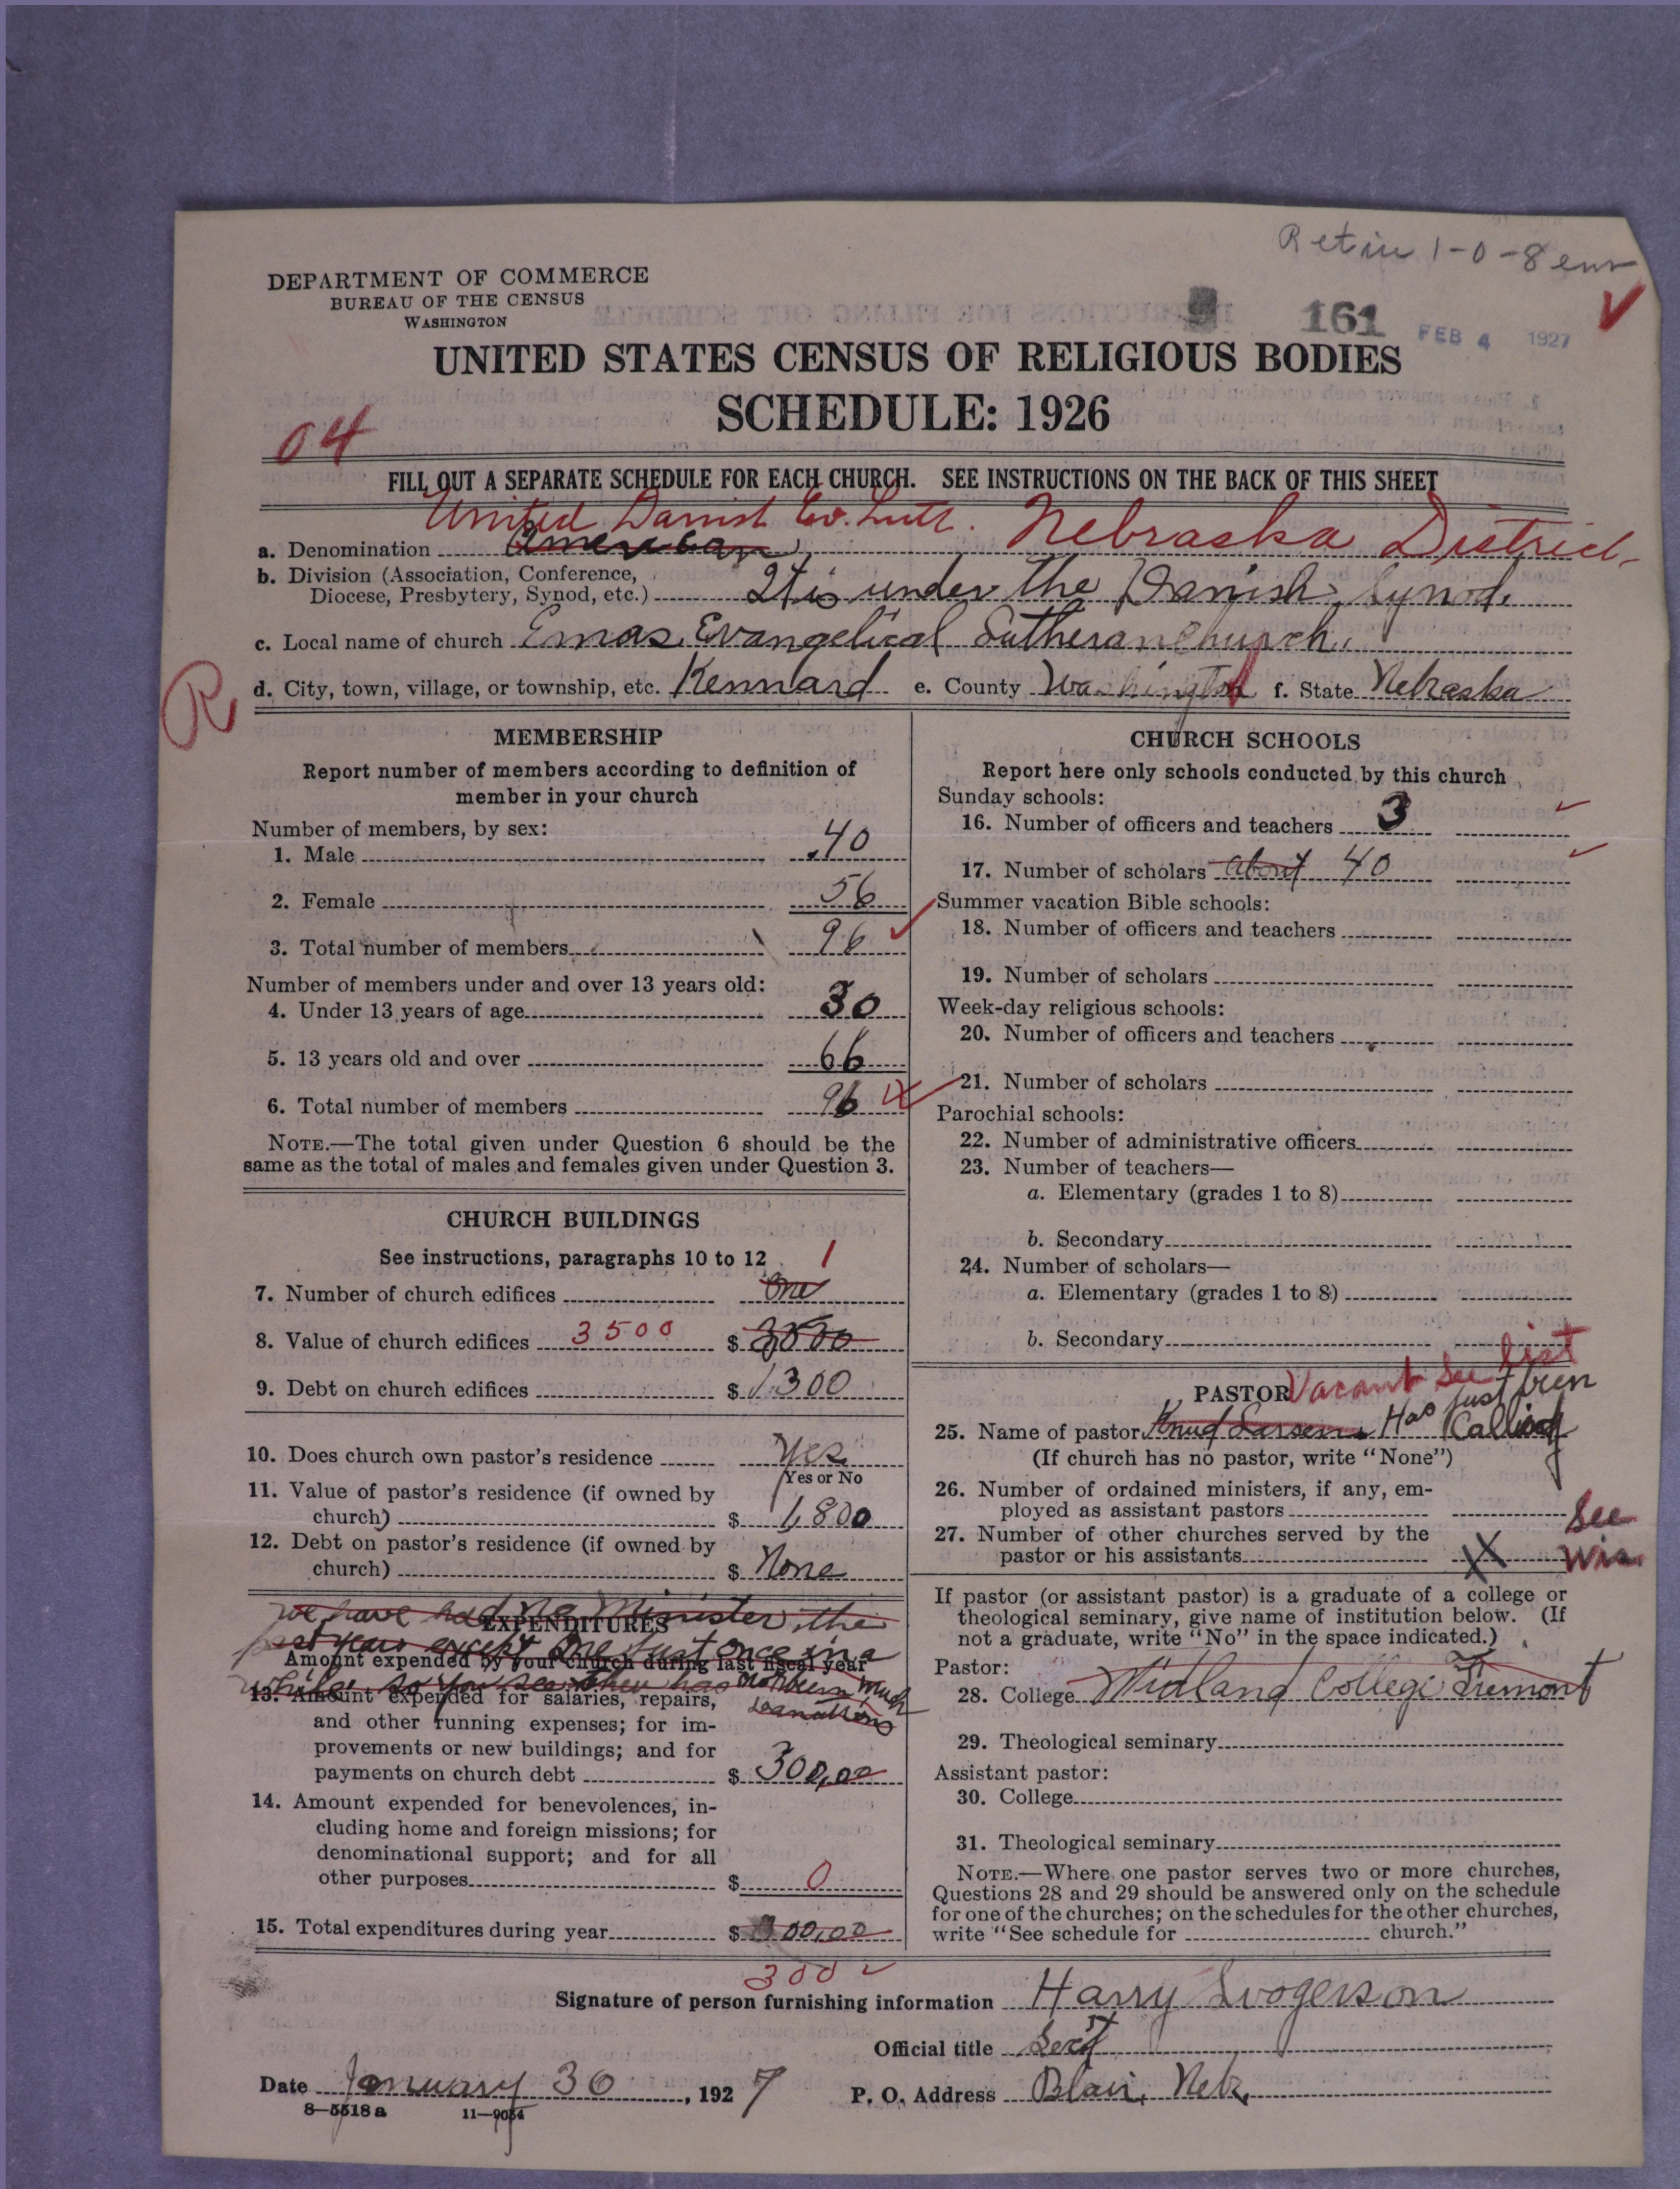 Retin 1-0-8 enr
DEPARTMENT OF COMMERCE
BUREAU OF THE CENSUS
WASHINGTON
161
FEB 4 1927
UNITED STATES CENSUS OF RELIGIOUS BODIES
SCHEDULE: 1926
04
FILL OUT A SEPARATE SCHEDULE FOR EACH CHURCH. SEE INSTRUCTIONS ON THE BACK OF THIS SHEET
United Danish Ev. Luth. Nebraska District
a. Denomination American
b. Division (Association, Conference,
Diocese, Presbytery, Synod, etc.) It is under the Danish Synod.
c. Local name of church Emas Evangelical Lutheran Church.
R
d. City, town, village, or township, etc. Kennard e. County Washington f. State Nebraska
MEMBERSHIP
Report number of members according to definition of
member in your church
Number of members, by sex:
1. Male 40
2. Female 56
3. Total number of members 96
Number of members under and over 13 years old:
4. Under 13 years of age 30
5. 13 years old and over 66
6. Total number of members 96
NOTE.—The total given under Question 6 should be the
same as the total of males and females given under Question 3.
CHURCH BUILDINGS
See instructions, paragraphs 10 to 12
1
7. Number of church edifices One
8. Value of church edifices 3500 $ 3500
9. Debt on church edifices $ 1300
10. Does church own pastor's residence Yes
Yes or No
11. Value of pastor's residence (if owned by
church) $ 1,800
12. Debt on pastor's residence (if owned by
church) $ None
we have had no Minister the
past years except one just once in a
while so you see there has not been much
donations
EXPENDITURES
Amount expended by your church during last fiscal year
13. Amount expended for salaries, repairs,
and other running expenses; for im-
provements or new buildings; and for
payments on church debt $ 300,00
14. Amount expended for benevolences, in-
cluding home and foreign missions; for
denominational support; and for all
other purposes $ 0
15. Total expenditures during year $ 300,00
300
CHURCH SCHOOLS
Report here only schools conducted by this church
Sunday schools:
16. Number of officers and teachers 3
17. Number of scholars about 40
Summer vacation Bible schools:
18. Number of officers and teachers
19. Number of scholars
Week-day religious schools:
20. Number of officers and teachers
21. Number of scholars
Parochial schools:
22. Number of administrative officers
23. Number of teachers—
a. Elementary (grades 1 to 8)
b. Secondary
24. Number of scholars—
a. Elementary (grades 1 to 8)
b. Secondary
PASTOR Vacant See list
25. Name of pastor Knud Larsen Has just been Called
(If church has no pastor, write "None")
26. Number of ordained ministers, if any, em-
ployed as assistant pastors
27. Number of other churches served by the
pastor or his assistants X
See
Wis.
If pastor (or assistant pastor) is a graduate of a college or
theological seminary, give name of institution below. (If
not a graduate, write "No" in the space indicated.)
Pastor:
28. College Midland College Fremont
29. Theological seminary
Assistant pastor:
30. College
31. Theological seminary
NOTE.—Where one pastor serves two or more churches,
Questions 28 and 29 should be answered only on the schedule
for one of the churches; on the schedules for the other churches,
write "See schedule for church."
Signature of person furnishing information Harry
Official title Secy
Date January 30, 1927 P. O. Address Blair, Neb.
8—5518 a 11—9054